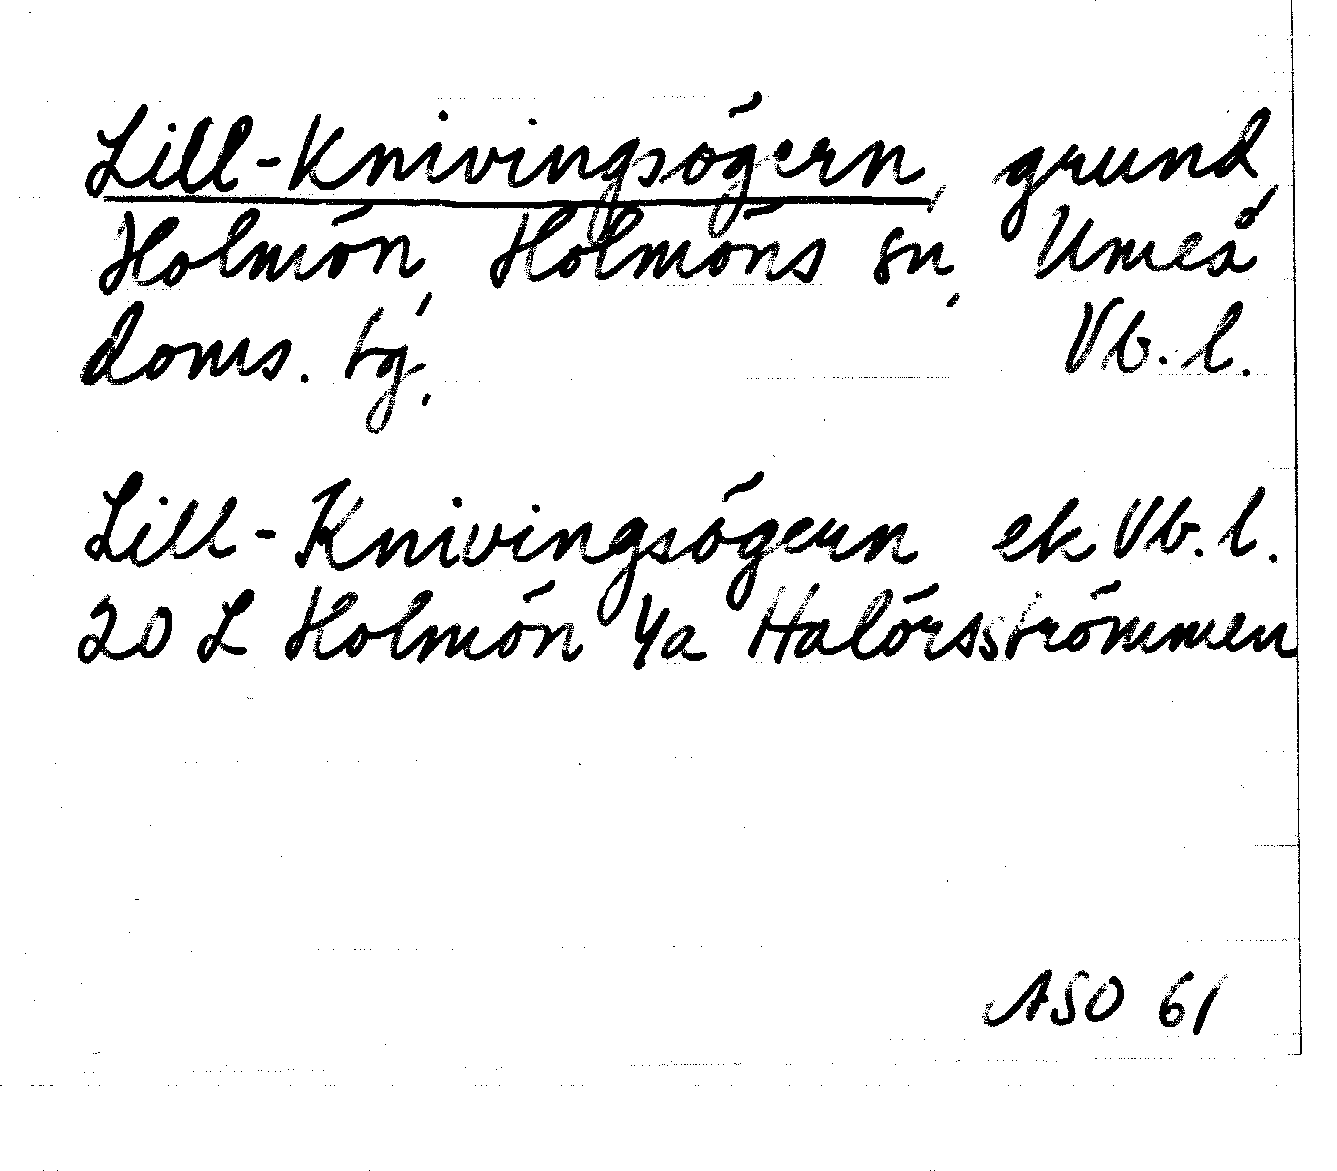 Lill-Knivingsögern, grund,
Holmön, Holmöns sn, Umeå
doms. tg. Vb. l.
Lill-Knivingsögern ek Vb. l.
20 L Holmön 4a Halörsströmmen
ASO 61